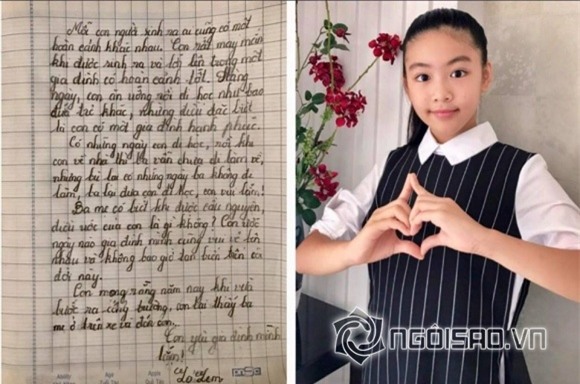 Mỗi con người sinh ra ai cũng có một
hoàn cảnh khác nhau. Con rất may mắn
khi được sinh ra và lớn lên trong một
gia đình có hoàn cảnh tốt. Hằng
ngày, con ăn uống rồi đi học như bao
đứa trẻ khác, nhưng điều đặc biệt
là con có một gia đình hạnh phúc.
Có những ngày con đi học, rồi khi
con về nhà thì ba vẫn chưa đi làm về,
nhưng bù lại có những ngày ba không đi
làm, ba lại đưa con đi học, con vui lắm!
Ba mẹ có biết khi được cầu nguyện,
điều ước của con là gì không? Con ước
ngày nào gia đình mình cũng vui vẻ bên
nhau và không bao giờ tan biến trên cõi
đời này.
Con mong rằng năm nay khi
bước ra cổng trường, con lại thấy ba
mẹ ở trên xe và đón con.
Con yêu gia đình mình
lắm!
Lọ Lem
NGÔISAO.VN